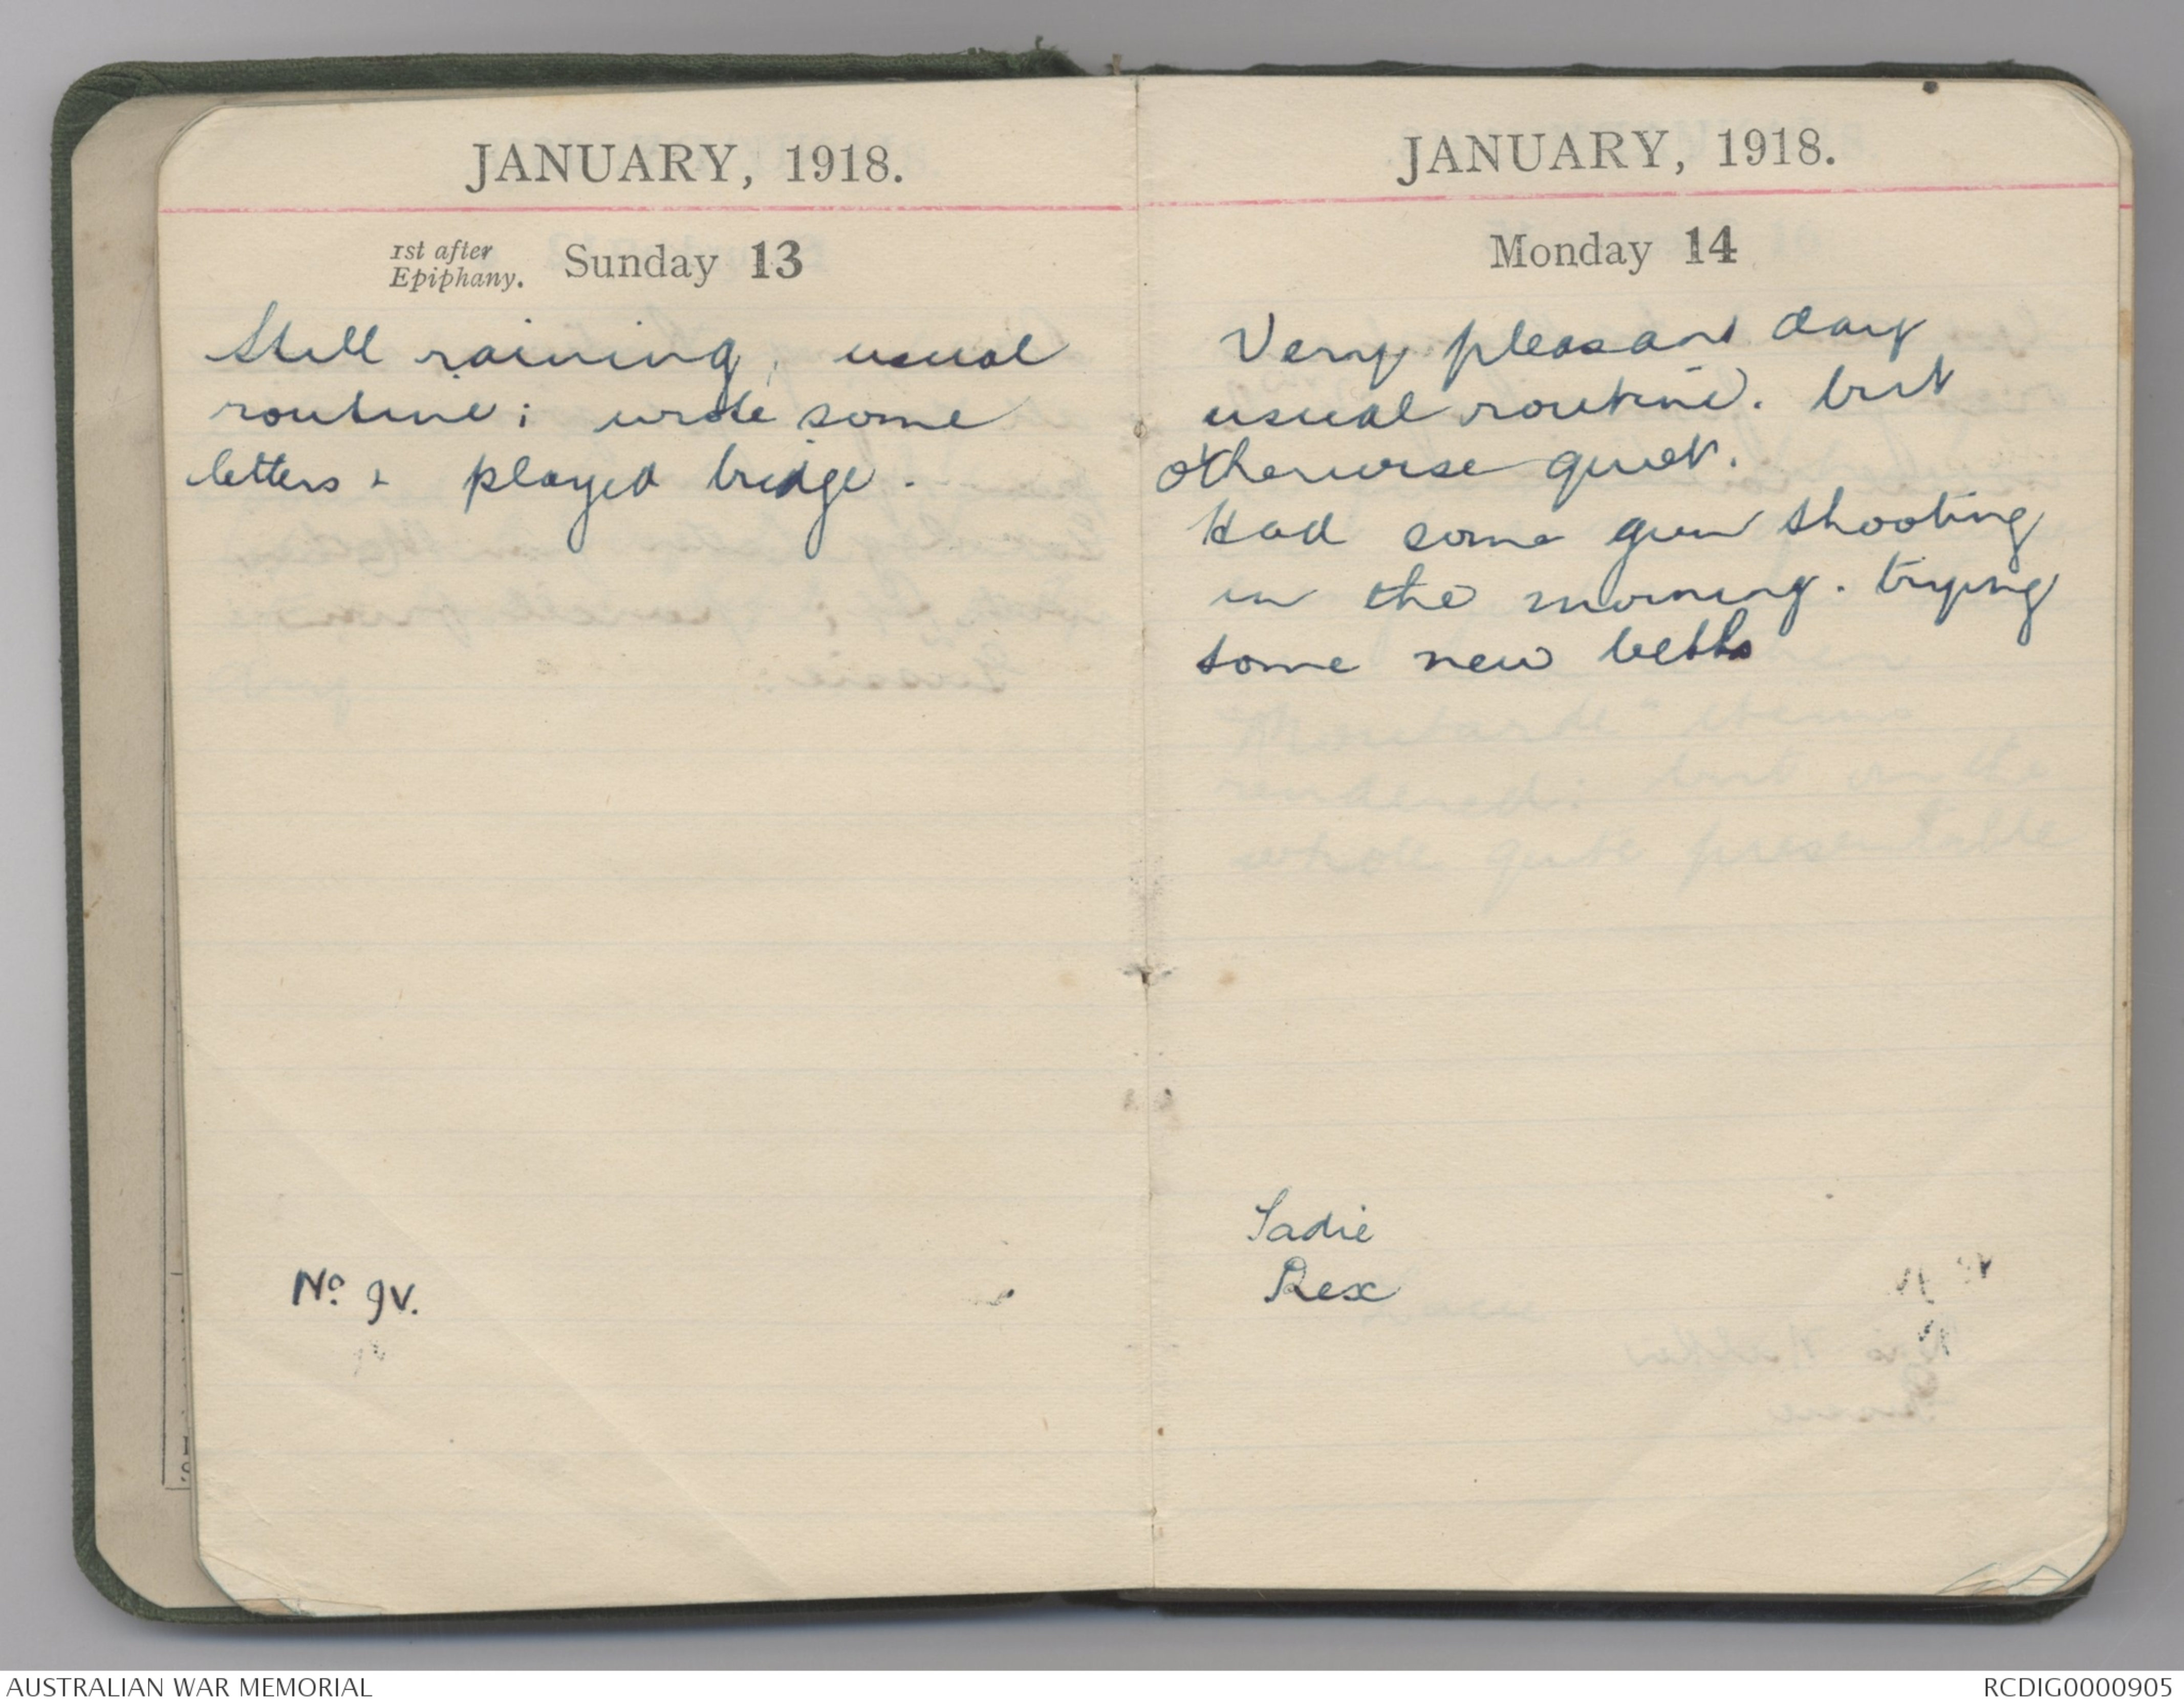 JANUARY, 1918.
1st after
Epiphany. Sunday 13
Still raining, usual
routine; wrote some
letters & played bridge.
No. 9V.
JANUARY, 1918.
Monday 14
Very pleasant day
usual routine. but
otherwise quiet.
Had some gun shooting
in the morning. trying
some new belts
Sadie
Rex
AUSTRALIAN WAR MEMORIAL
RCDIG0000905